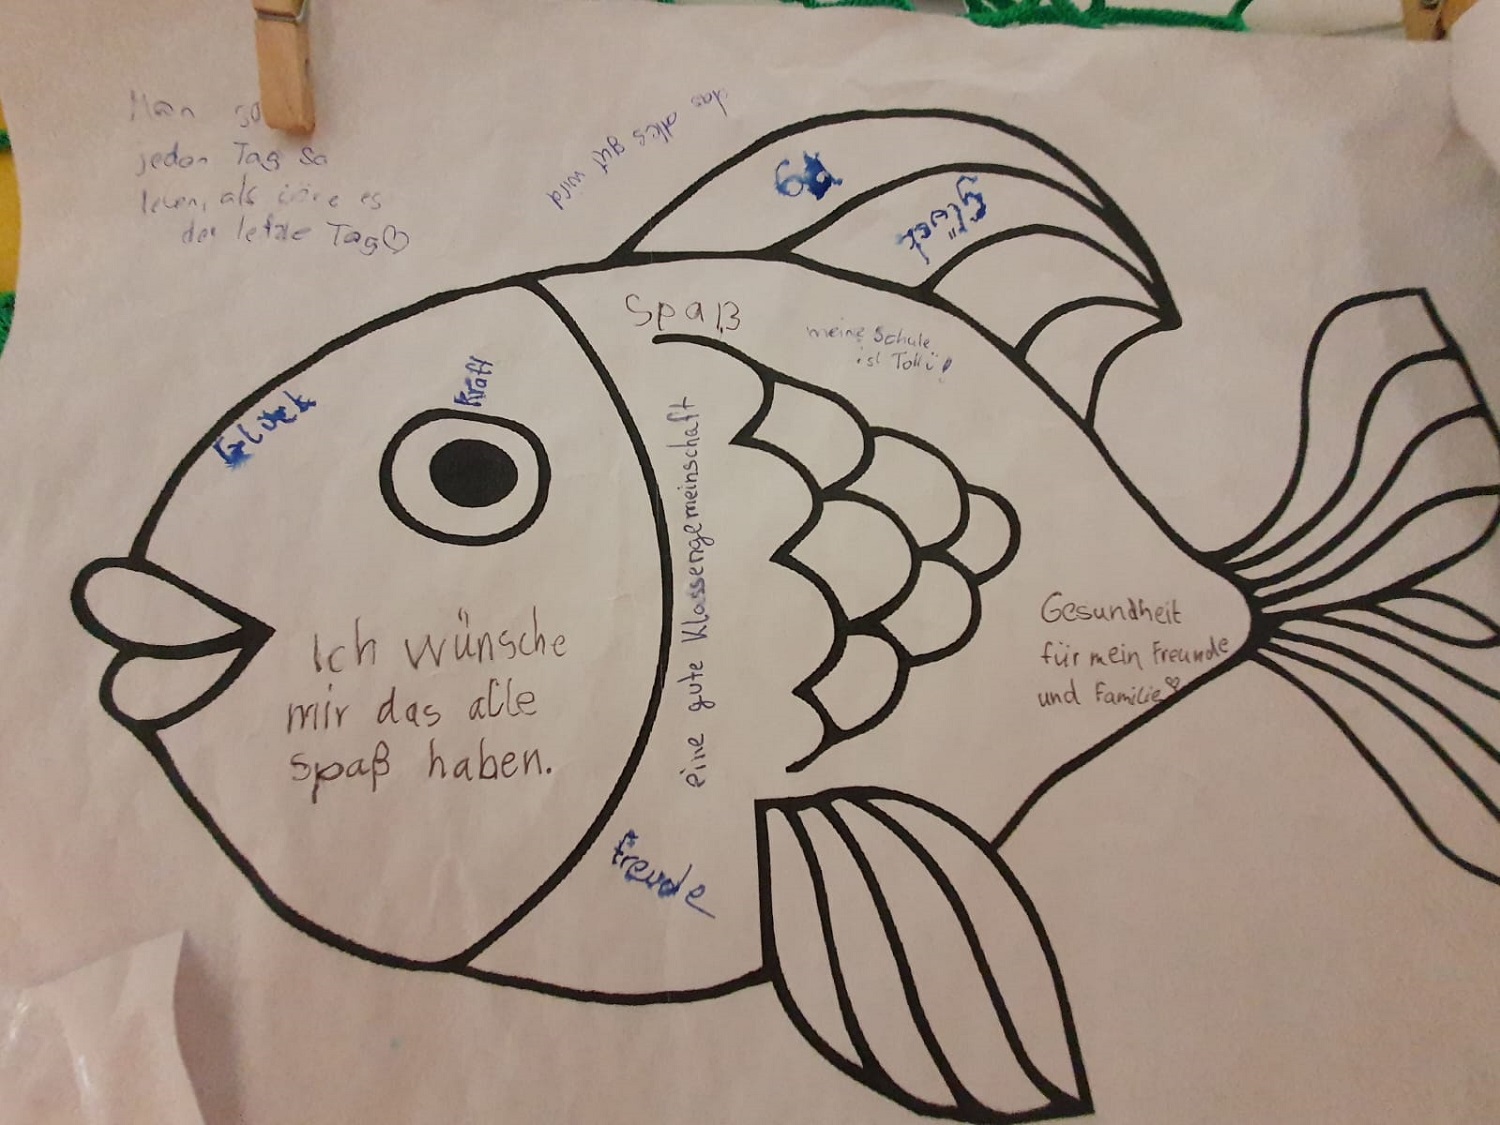 Man so
jeden Tag so
leben, als wäre es
der letzte Tag♡
das alles gut wird
glück
Spaß
meine Schule
ist Toll ü!
Kraft
Glück
eine gute Klassengemeinschaft
Ich wünsche
mir das alle
spaß haben.
Gesundheit
für mein Freunde
und Familie♡
Freunde